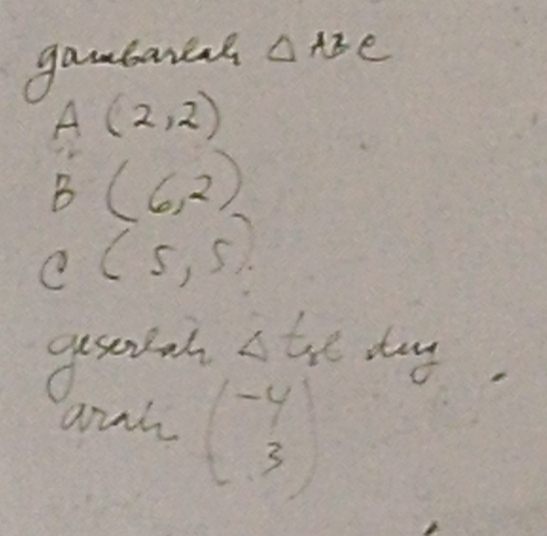 gambarlah △ ABC
A (2,2)
B (6,2)
C (5,5)
geserlah △ tsb dng
arah (-4
3)